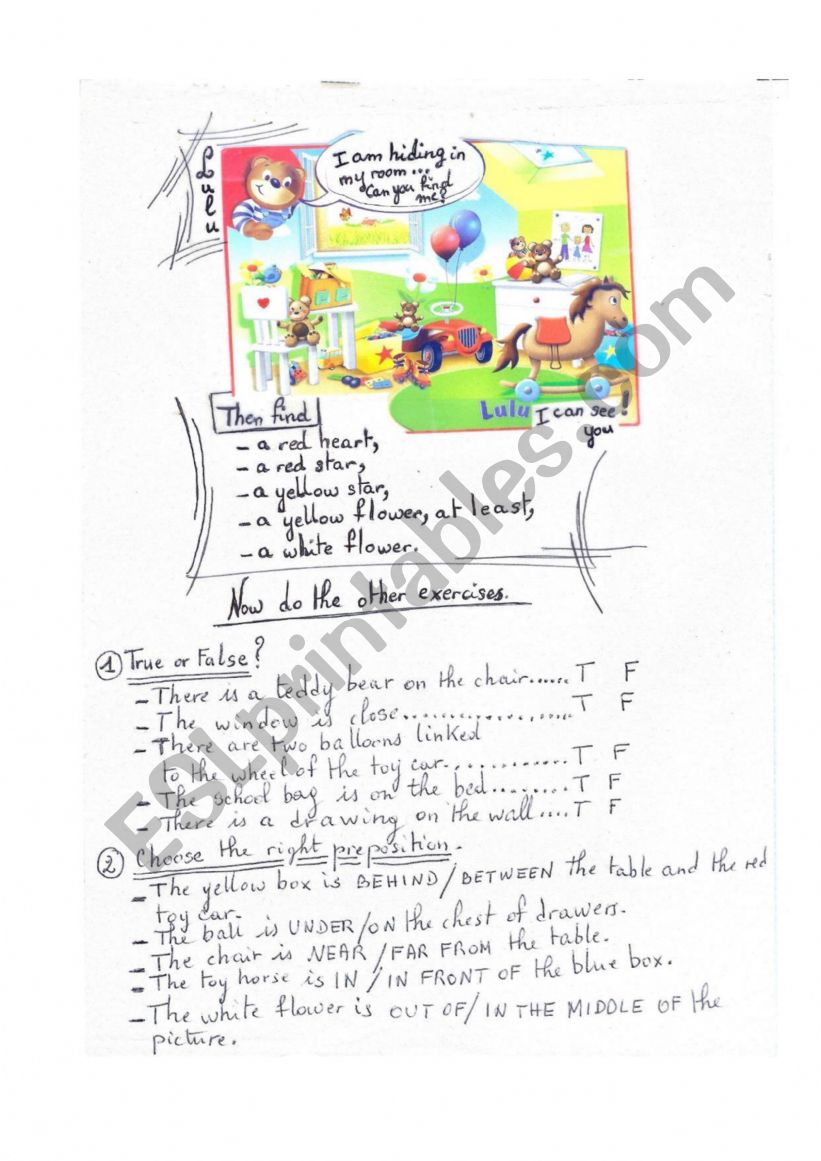 Lulu
I am hiding in
my room...
Can you find
me?
Lulu I can see !
you
Then find
- a red heart,
- a red star,
- a yellow star,
- a yellow flower, at least,
- a white flower.
Now do the other exercises.
1 True or False?
- There is a teddy bear on the chair...... T F
- The window is close.................... T F
- There are two balloons linked
to the wheel of the toy car............. T F
- The school bag is on the bed......... T F
- There is a drawing on the wall.... T F
2 Choose the right preposition.
- The yellow box is BEHIND / BETWEEN the table and the red
toy car.
- The ball is UNDER / ON the chest of drawers.
- The chair is NEAR / FAR FROM the table.
- The toy horse is IN / IN FRONT OF the blue box.
- The white flower is OUT OF / IN THE MIDDLE OF the
picture.
ESLprintables.com